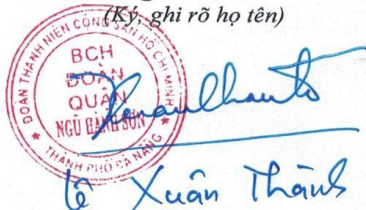 (Ký, ghi rõ họ tên)
ĐOÀN THANH NIÊN CỘNG SẢN HỒ CHÍ MINH
BCH
ĐOÀN
QUẬN
NGŨ HÀNH SƠN
THÀNH PHỐ ĐÀ NẴNG
Lê Xuân Thành